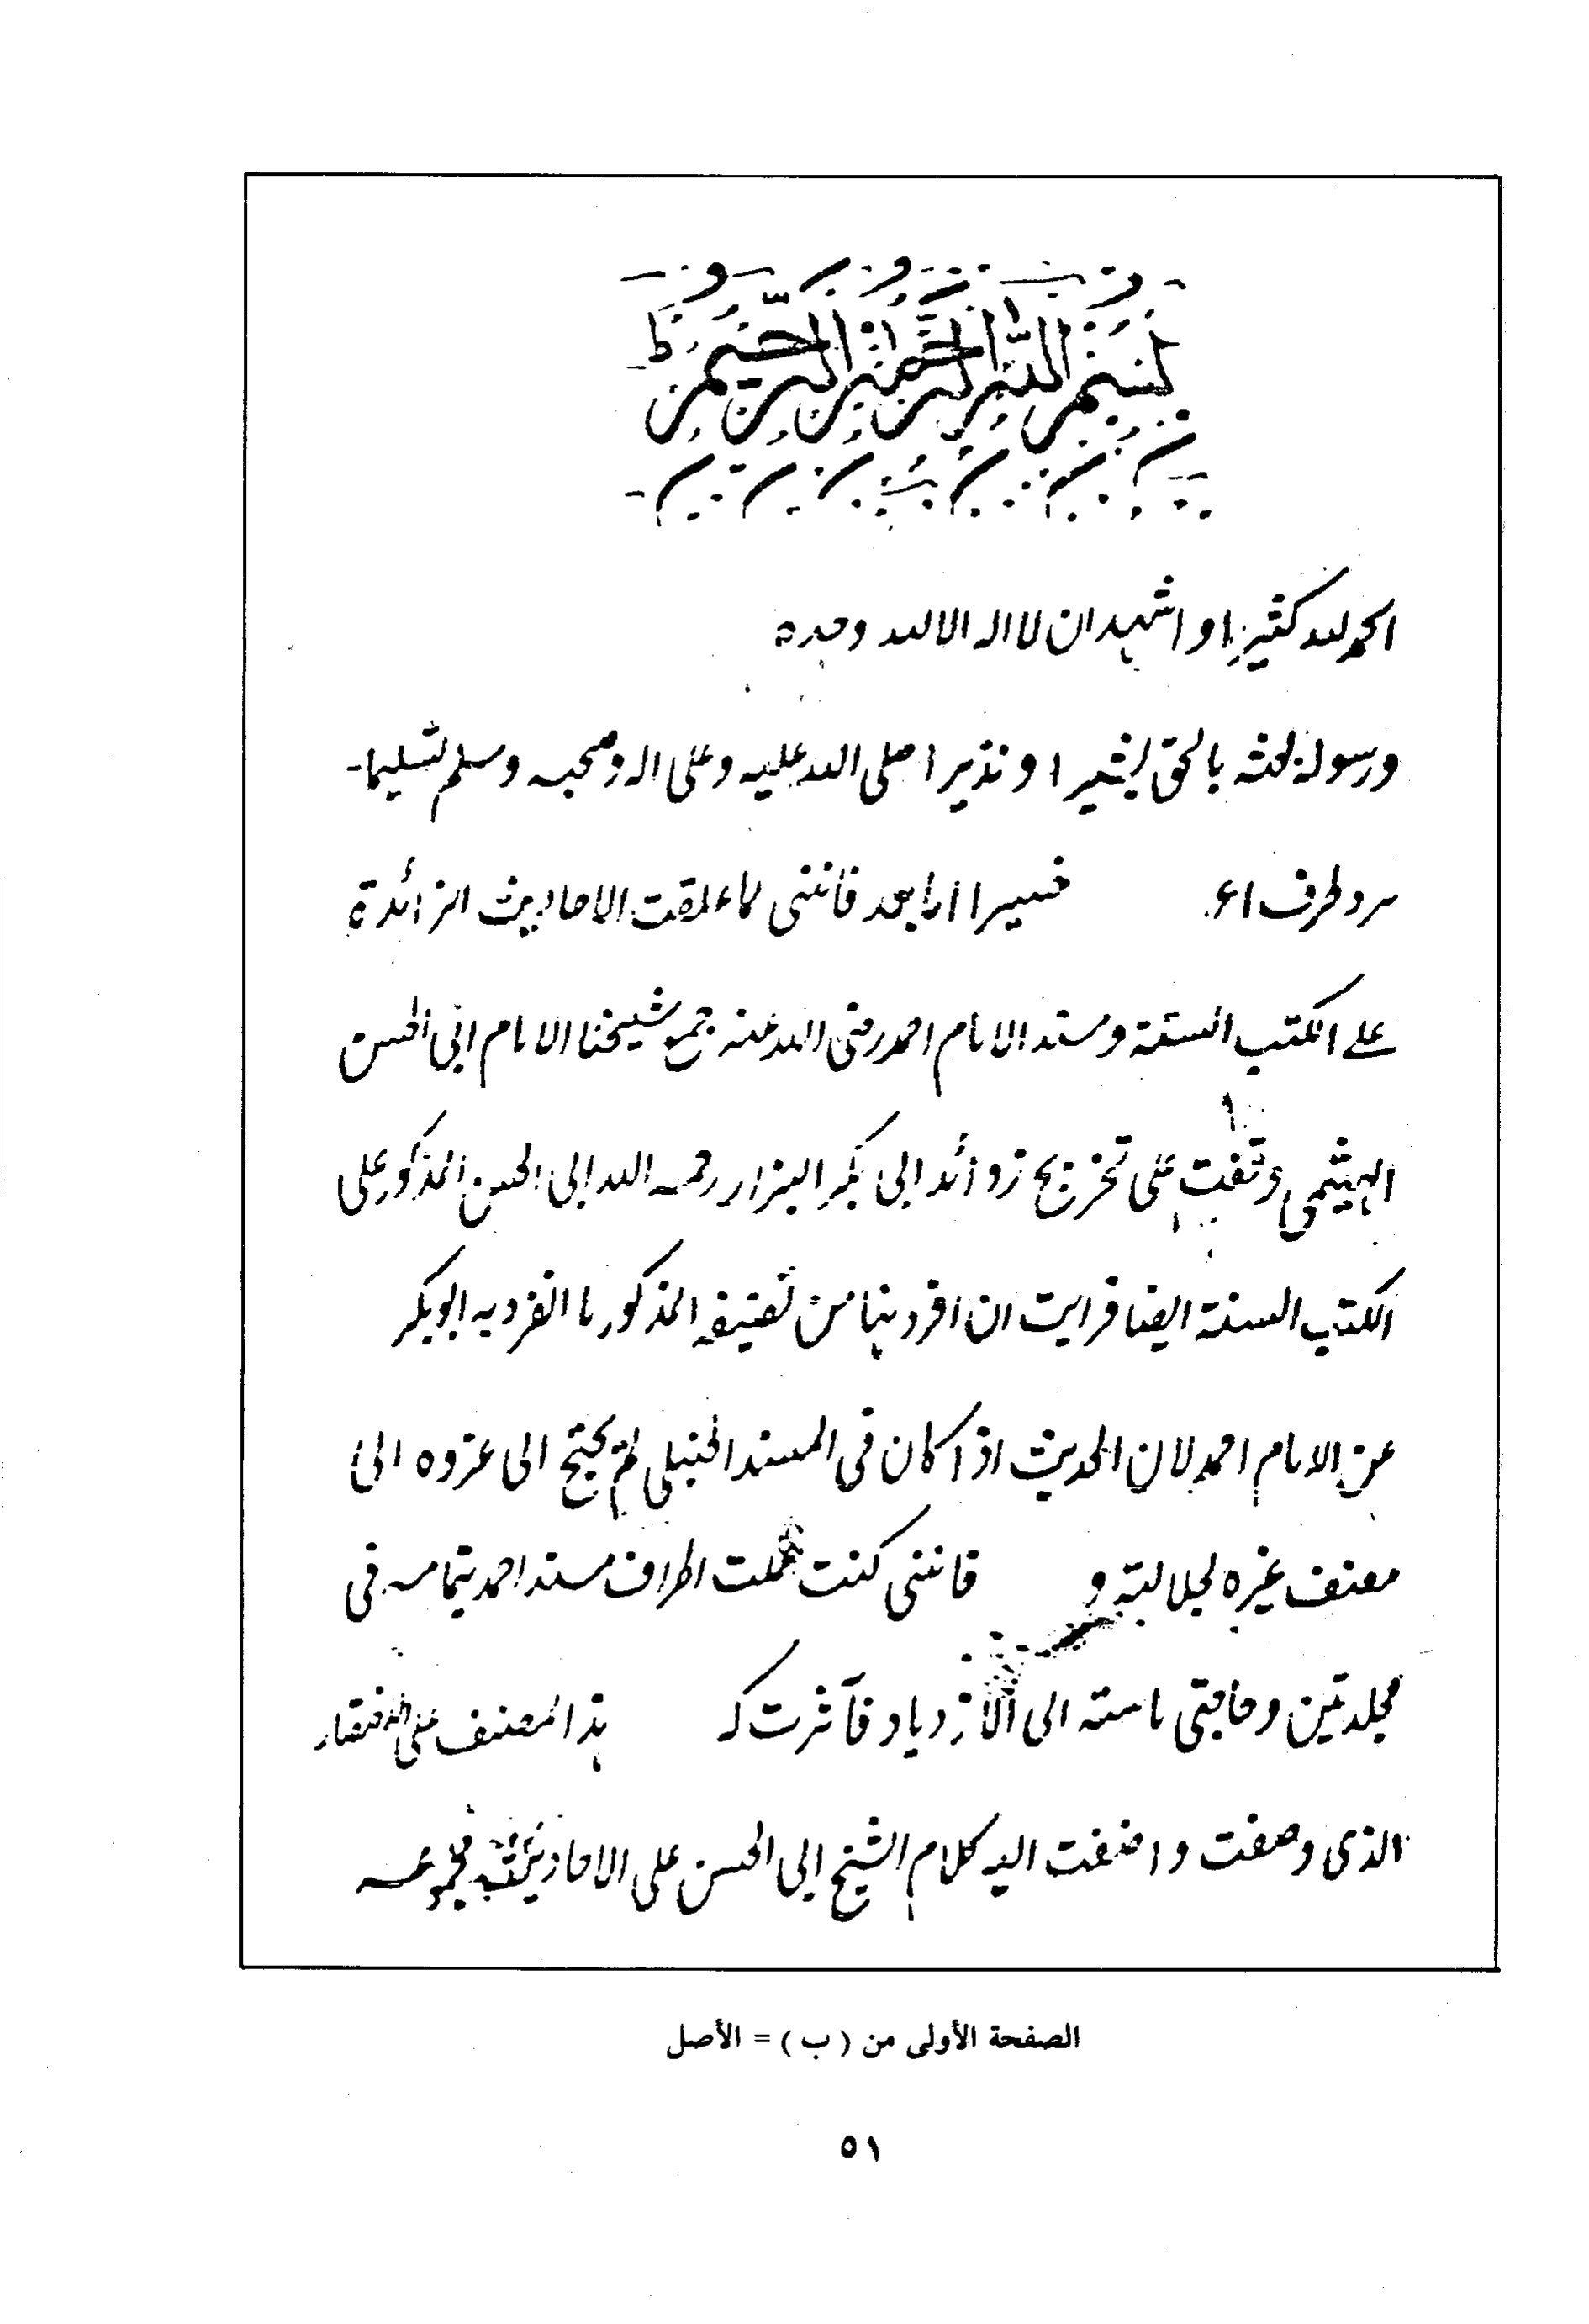 بسم الله الرحمن الرحيم
الحمد لله كثيرا و اشهد ان لا اله الا الله وحده
ورسوله بعثه بالحق بشيرا و نذيرا صلى الله عليه وعلى اله وصحبه وسلم تسليما
خبيرا اما بعد فاننى لما علقت الاحاديث الزائدة
على الكتب الستة ومسند الامام احمد رضى الله عنه جمع شيخنا الامام ابى الحسن
الهيثمى وقفت على تخريج زوائد ابى بكر البزار رحمه الله ابى الحسن المذكور على
الكتب الستة ايضا فرايت ان افرد هنا من تصنيفه المذكور ما انفرد به ابو بكر
عن الامام احمد لان الحديث اذا كان فى المسند الحنبلى لم يحتج الى عزوه الى
مصنف غيره لجلالته و فاننى كنت عملت اطراف مسند احمد بتمامه فى
مجلدتين وحاجتى ماسته الى الازدياد فآثرت له هذا المصنف على
الذى وصفت واضفت اليه كلام الشيخ ابى الحسن على الاحاديث
الصفحة الأولى من ( ب ) = الأصل
٥١